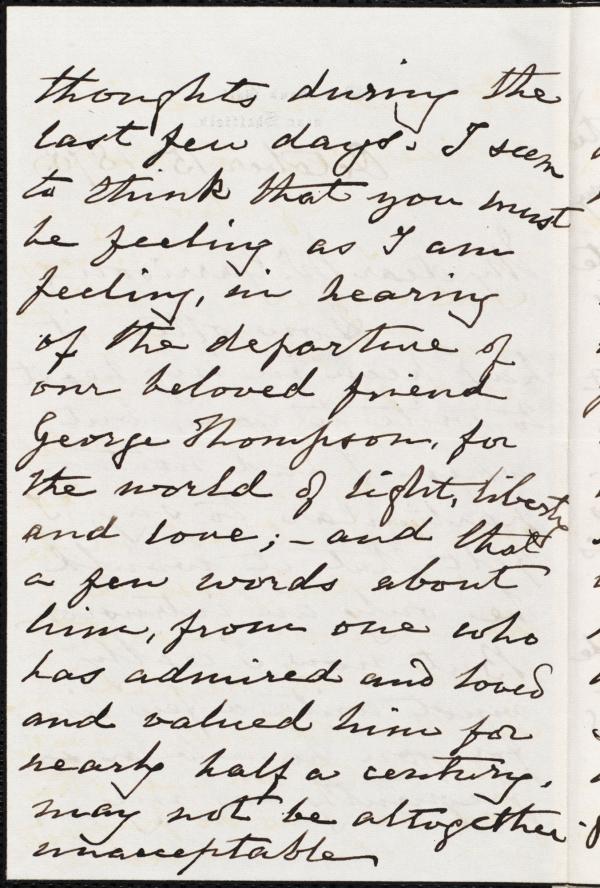 thoughts during the
last few days. I seem
to think that you must
be feeling as I am
feeling, in hearing
of the departure of
our beloved friend
George Thompson, for
the world of light, liberty
and love; – and that
a few words about
him, from one who
has admired and loved
and valued him for
nearly half a century,
may not be altogether
unacceptable